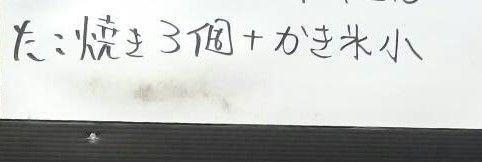 たこ焼き3個+かき氷小